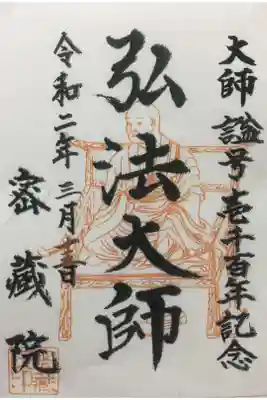 大師諡号壱千百年記念
弘法大師
令和二年三月十一日
密蔵院